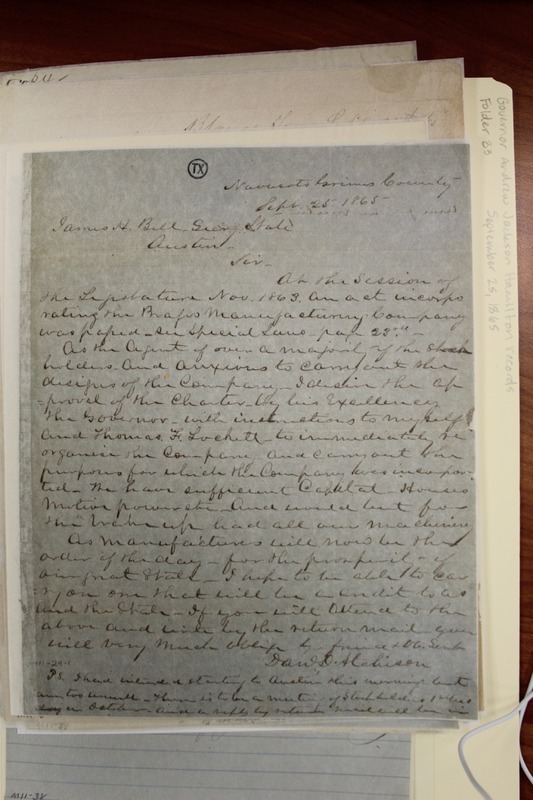 Governor Andrew Jackson Hamilton records
Folder 23
September 25, 1865
TX
Navasota Grimes County
Sept. 25 1865
James H. Bell Secy State
Austin
Sir
At the Session of
the Legislature Nov. 1863. An act incorpo
rating the Brazos Manufacturing Company
was passed - See Special Laws - page 23rd -
As the Agent of over a majority of the stock
holders. And anxious to carry out the
designs of the Company - I desire the ap
=proval of the Charter by his Excellency
the Governor - with instructions to myself
and Thomas F. Lockett - to immediately re
organise the Company and carry out the
purposes for which the Company was incorpora
ted - We have sufficient Capital - Houses
Motive power &c - And would but for
the break up had all our machinery
As manufactures will now be the
order of the day - for the prosperity of
our great State - I hope to be able to car
ry on one that will be a credit to us
and the State - If you will attend to the
above and write by the return mail you
will very much oblige yr friend & Ob. Servt
D. Atchison
PS. I had intended starting to Austin this morning but
am too unwell - There is to be a meeting of Stockholders
in October - And a reply by return mail will